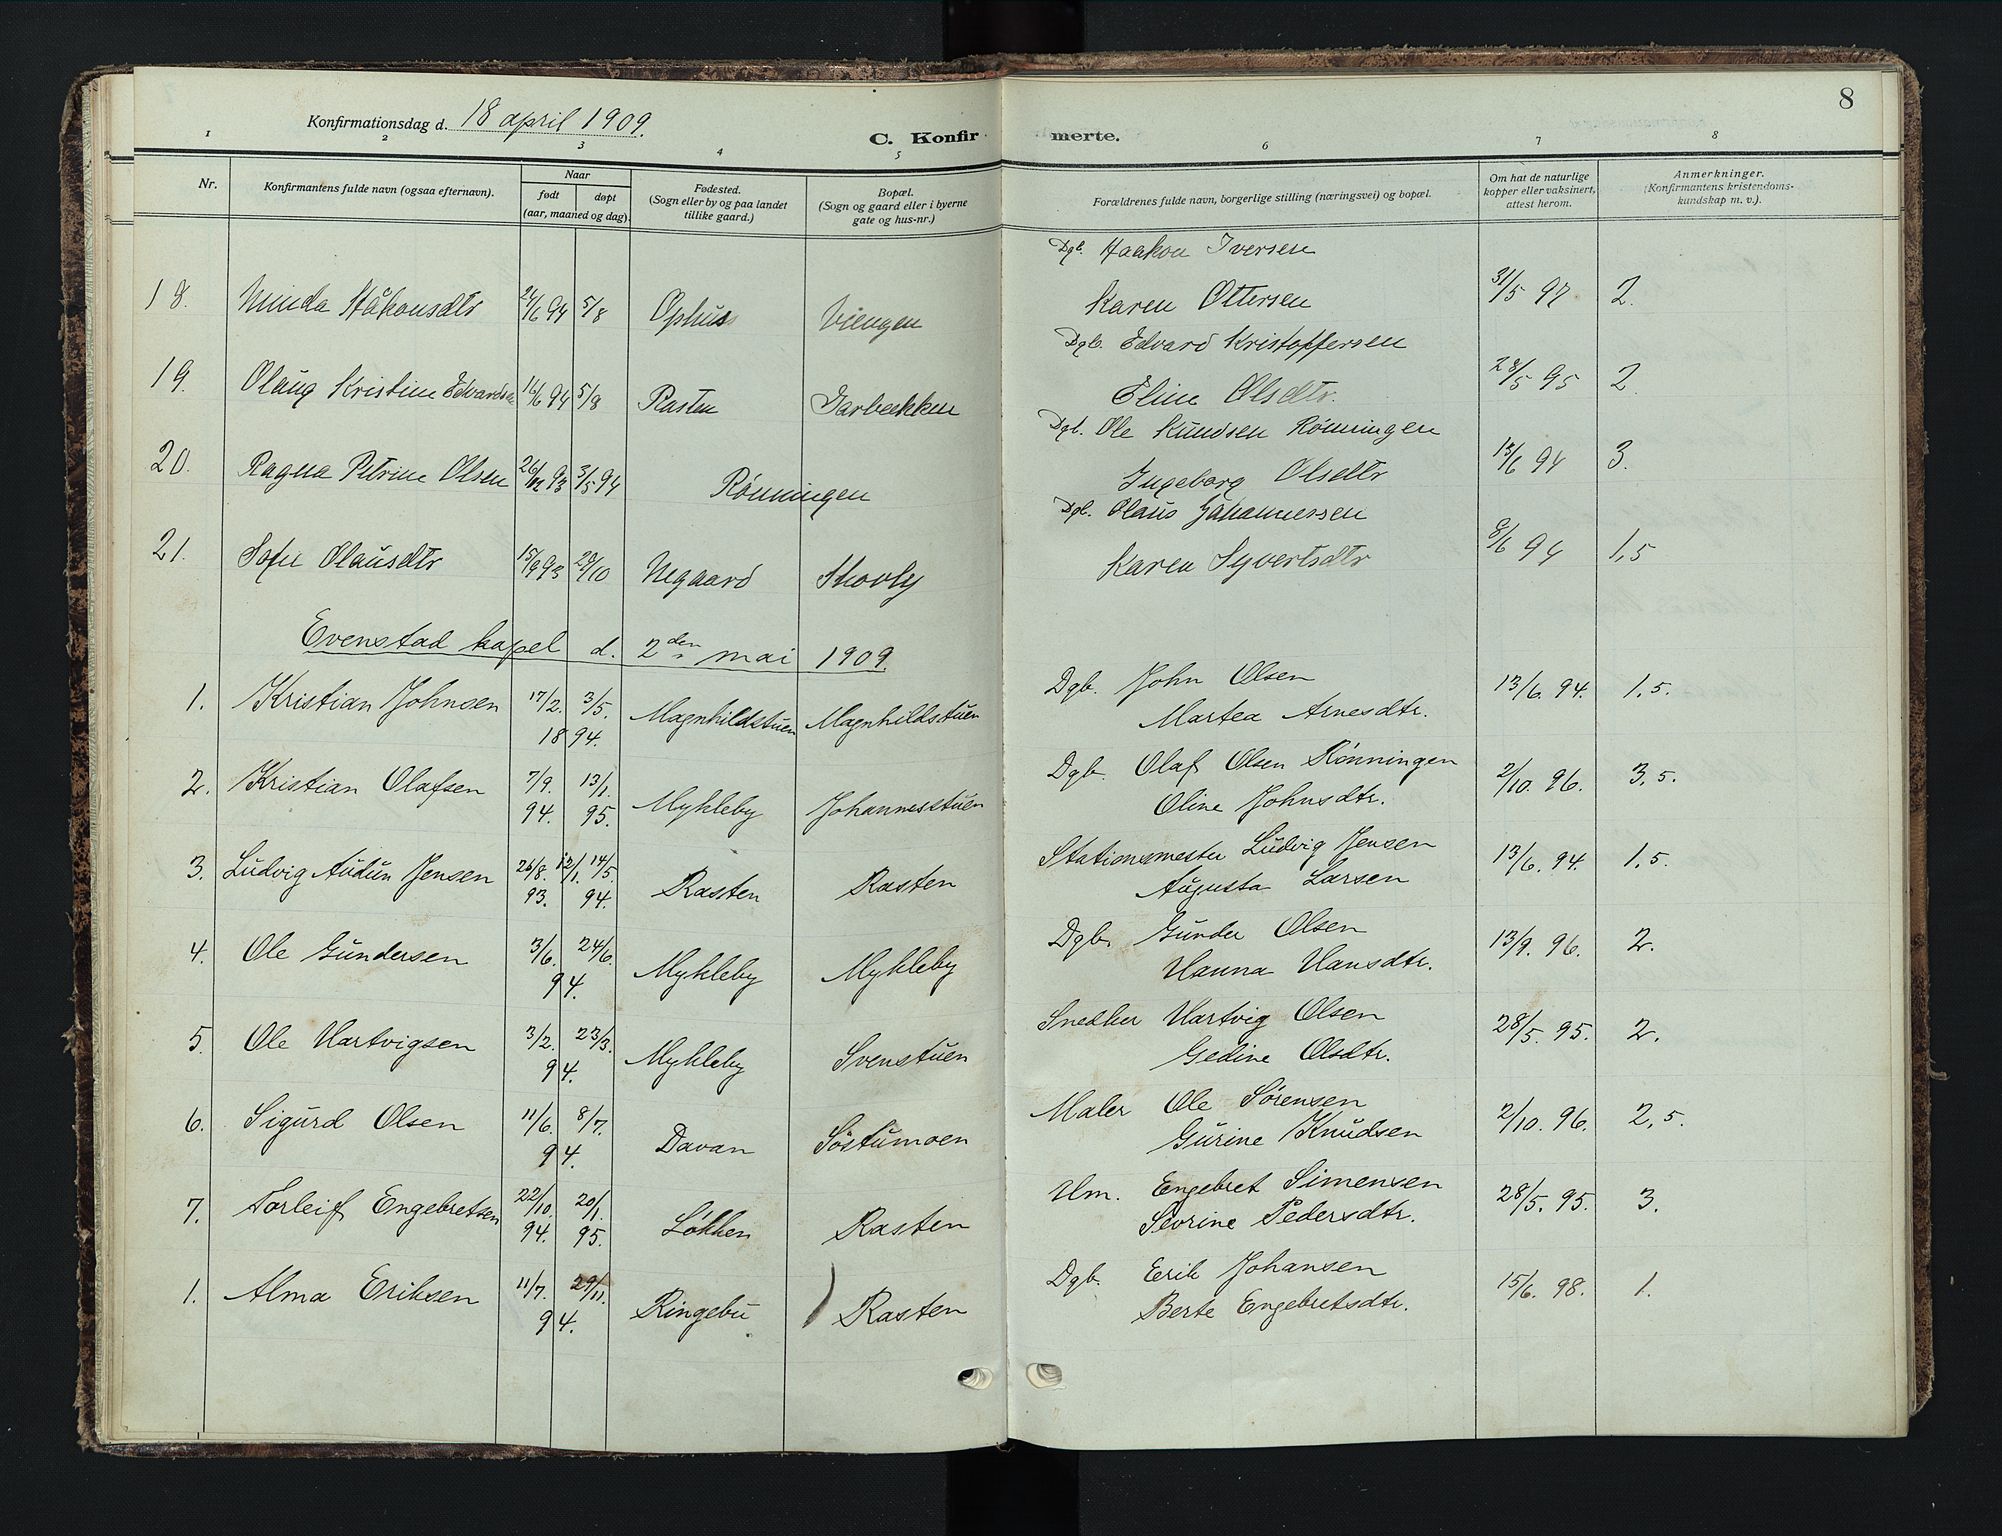 8
Konfirmationsdag d. 18 april 1909.
C. Konfirmerte.
1 2 3 4 5 6 7 8
Nr.
Konfirmantens fulde navn (ogsaa efternavn).
Naar
født døpt
(aar, maaned og dag).
Fødested.
(Sogn eller by og paa landet
tillike gaard.)
Bopæl.
(Sogn og gaard eller i byerne
gate og hus-nr.)
Forældrenes fulde navn, borgerlige stilling (næringsvei) og bopæl.
Om hat de naturlige
kopper eller vaksinert,
attest herom.
Anmerkninger.
(Konfirmantens kristendoms-
kundskap m. v.).
Dgb. Haakon Iversen
18. Minda Håkonsdtr 24/6 94 5/8 Ophus Viengen Karen Ottersen 31/5 97 2.
Dgb. Edvard Kristoffersen
19. Olaug Kristine Edvardsen 16/6 94 5/8 Rasten Garbækken Eline Olsdtr. 28/5 95 2
Dgb. Ole Knudsen Rønningen
20. Ragna Petrine Olsen 26/12 93 3/5 94 Rønningen Ingeborg Olsdtr 13/6 94 3.
Dgb. Olaus Johannessen
21. Sofie Olausdtr 15/9 93 29/10 Negaard Skovly Karen Syvertsdtr 8/6 94 1,5
Evenstad kapel d. 2den mai 1909.
1. Kristian Johnsen 17/2. 3/5. Magnhildstuen Magnhildsstuen Dgb. John Olsen 13/6. 94. 1,5.
18 94. Martea Arnesdtr.
2. Kristian Olafsen 7/9. 13/1. Mykleby Johannesstuen Dgb. Olaf Olsen Rønningen 2/10. 96. 3,5.
94. 95. Oline Johnsdtr.
3. Ludvig Audun Jensen 26/8. 12/1. 14/5. Rasten Rasten Stationsmester Ludvig Jensen 13/6. 94. 1,5.
93. 94. Augusta Larsen
4. Ole Gundersen 3/6. 24/6. Mykleby Mykleby Dgb. Gunder Olsen 13/9. 96. 2.
94. Hanna Hansdtr.
5. Ole Hartvigsen 3/2. 23/3. Mykleby Svenstuen Snedker Hartvig Olsen 28/5. 95. 2.
94. Gedine Olsdtr.
6. Sigurd Olsen 11/6. 8/7. Davan Søstumoen Maler Ole Sørensen 2/10. 96. 2,5.
94. Gurine Knudsen
7. Torleif Engebretsen 22/10. 20/1. Løkken Rasten Hm. Engebret Simensen 28/5. 95. 3.
94. 95. Sevrine Pedersdtr.
1. Alma Eriksen 11/7. 29/11. Ringebu Rasten Dgb. Erik Johansen 15/6. 98. 1.
94. Berte Engebretsdtr.